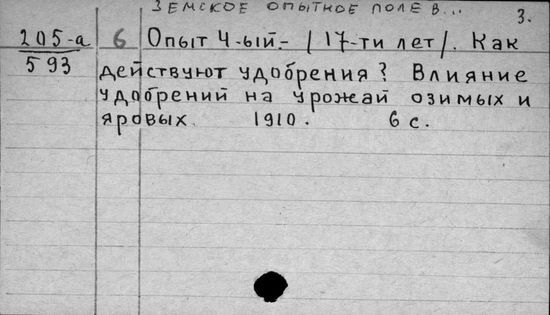 Земское опытное поле в... 3.
205-а 6 Опыт 4-ый.- /17-ти лет/. Как
593 действуют удобрения? Влияние
удобрений на урожай озимых и
яровых. 1910. 6 с.